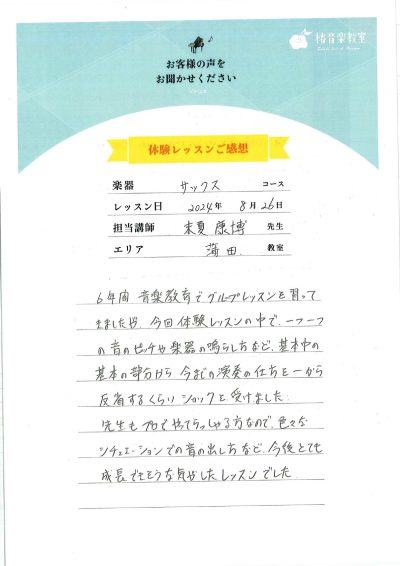 椿音楽教室
お客様の声を
お聞かせください
体験レッスンご感想
楽器 サックス コース
レッスン日 2024年 8月26日
担当講師 末夏 康博 先生
エリア 蒲田 教室
6年間 音楽教育でグループレッスンを習って
きましたが、今回体験レッスンの中で、一つ一つ
の音のピッチや楽器の鳴らし方など、基本中の
基本の部分から 今までの演奏の仕方を一から
反省するくらい ショックを受けました.
先生もプロでやってらっしゃる方なので、色々な
シチュエーションでの音の出し方など、今後とても
成長できそうな気がしたレッスンでした.